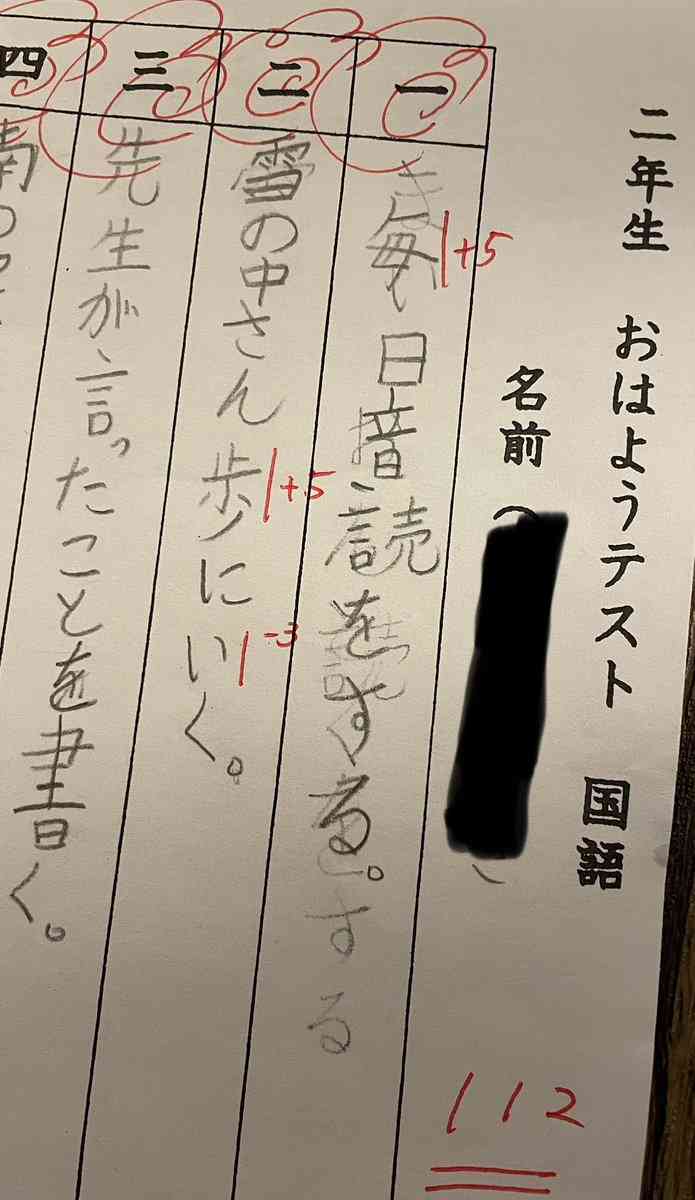 二年生 おはようテスト 国語
名前（
）
一
毎日音読をする。
する
+5
二
雪の中さん歩にいく。
+5
-3
三
先生が言ったことを書く。
四
南の
112